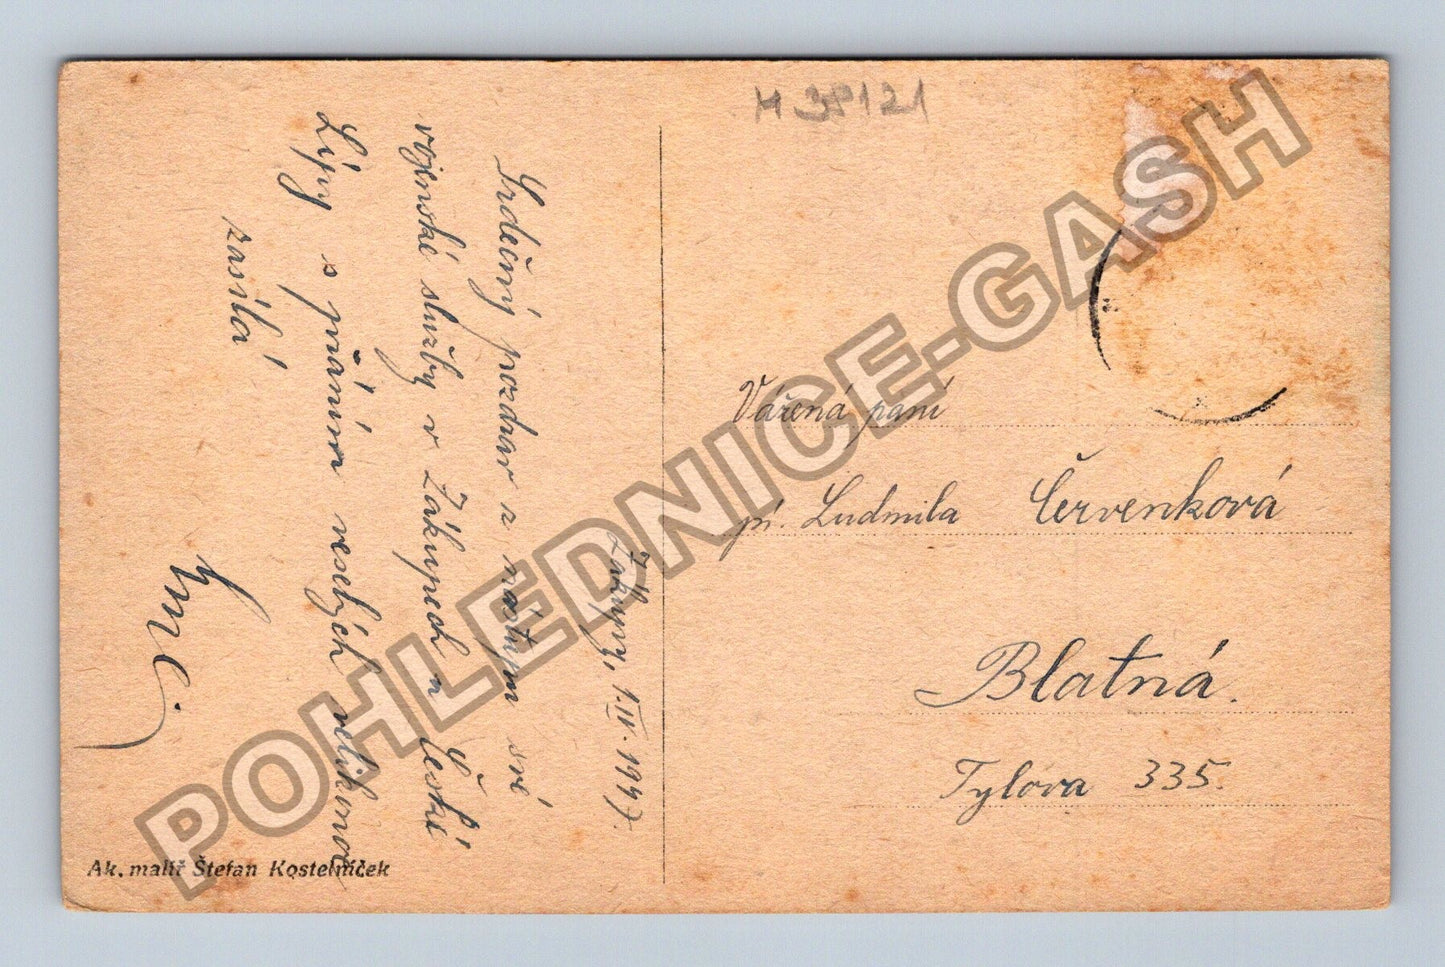 M 3P121
Zákupy, 1.IV.1947.
Srdečný pozdrav z nástupu své
vojenské služby v Zákupech u České
Lípy s přáním veselých velikonoc
zasílá
Vážená paní
pí. Ludmila Červenková
Blatná.
Tylova 335.
Ak. malíř Štefan Kostelníček
POHLEDNICE-GASH